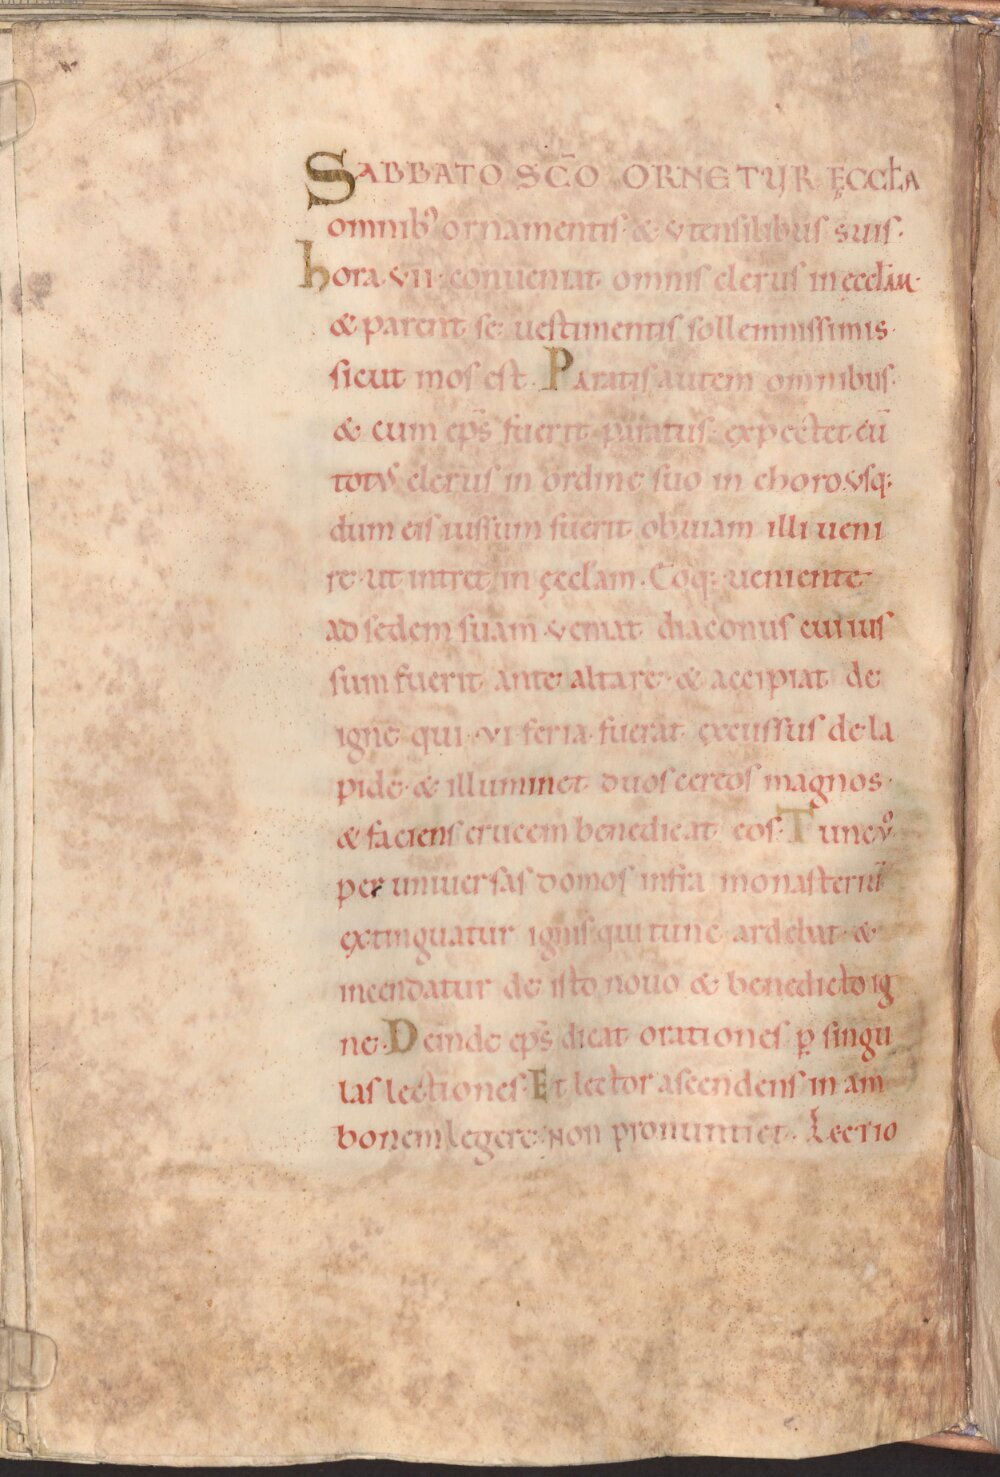 SABBATO SC̄O ORNETUR ĘCCƚA
omnibꝰ ornamentis · & vtensilibus suis ·
hora · vii · conueniat omnis clerus in ęccƚam ·
& parent se uestimentis sollemnissimis ·
sicut mos est . Paratis autem omnibus ·
& cum ep̄s fuerit paratus · ęxpectet eū
totꝰ clerus in ordine suo in choro · vsq;
dum eis iussum fuerit obuiam illi ueni
re · ut intret in ęccƚam . Eoq; ueniente
ad sedem suam · veniat diaconus cui ius
sum fuerit ante altare · & accipiat de
igne qui · vi feria · fuerat ęxcussus de la
pide · & illuminet duos cereos magnos ·
& faciens crucem benedicat eos · Tunc v̊
per uniuersas domos infra monasteriū
ęxtinguatur ignis qui tunc ardebat · &
incendatur de isto nouo & benedicto ig
ne · Deinde ep̄s dicat orationes ꝑ singu
las lectiones · Et lector ascendens in am
bonem legere · non pronuntiet · Lectio